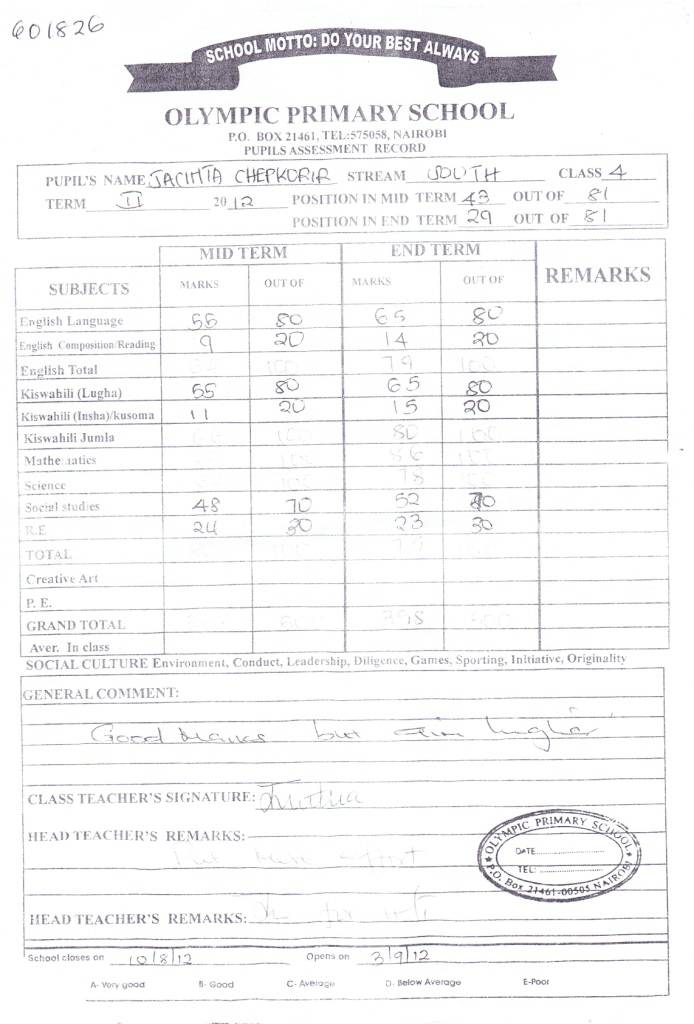 601826
SCHOOL MOTTO: DO YOUR BEST ALWAYS
OLYMPIC PRIMARY SCHOOL
P.O. BOX 21461, TEL:575058, NAIROBI
PUPILS ASSESSMENT RECORD
PUPIL'S NAME JACINTA CHEPKORIR STREAM SOUTH CLASS 4
TERM II 2012 POSITION IN MID TERM 43 OUT OF 81
POSITION IN END TERM 29 OUT OF 81
MID TERM END TERM
SUBJECTS MARKS OUT OF MARKS OUT OF REMARKS
English Language 56 80 65 80
English Composition/Reading 9 20 14 20
English Total 100 79 100
Kiswahili (Lugha) 55 80 65 80
Kiswahili (Insha)/kusoma 11 20 15 20
Kiswahili Jumla 100 80 100
Mathematics 86
Science 78
Social studies 48 70 52 70
R.E 24 30 23 30
TOTAL
Creative Art
P. E.
GRAND TOTAL 398 500
Aver. In class
SOCIAL CULTURE Environment, Conduct, Leadership, Diligence, Games, Sporting, Initiative, Originality
GENERAL COMMENT:
Good Marks but aim higher
CLASS TEACHER'S SIGNATURE:
HEAD TEACHER'S REMARKS:
Put more effort
OLYMPIC PRIMARY SCHOOL
DATE
TEL:
P.O. Box 21461-00505 NAIROBI
HEAD TEACHER'S REMARKS:
School closes on 10/8/12 Opens on 3/9/12
A- Very good B- Good C- Average D. Below Average E-Poor